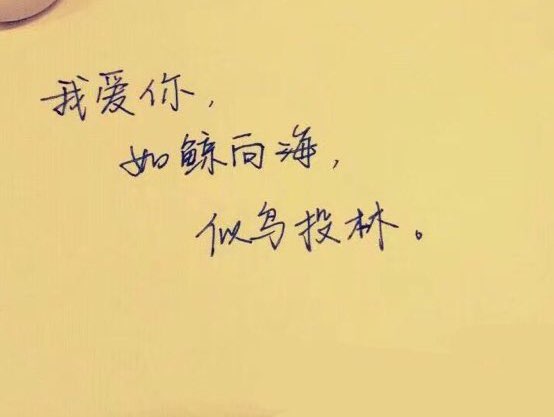 我爱你，
如鲸向海，
似鸟投林。